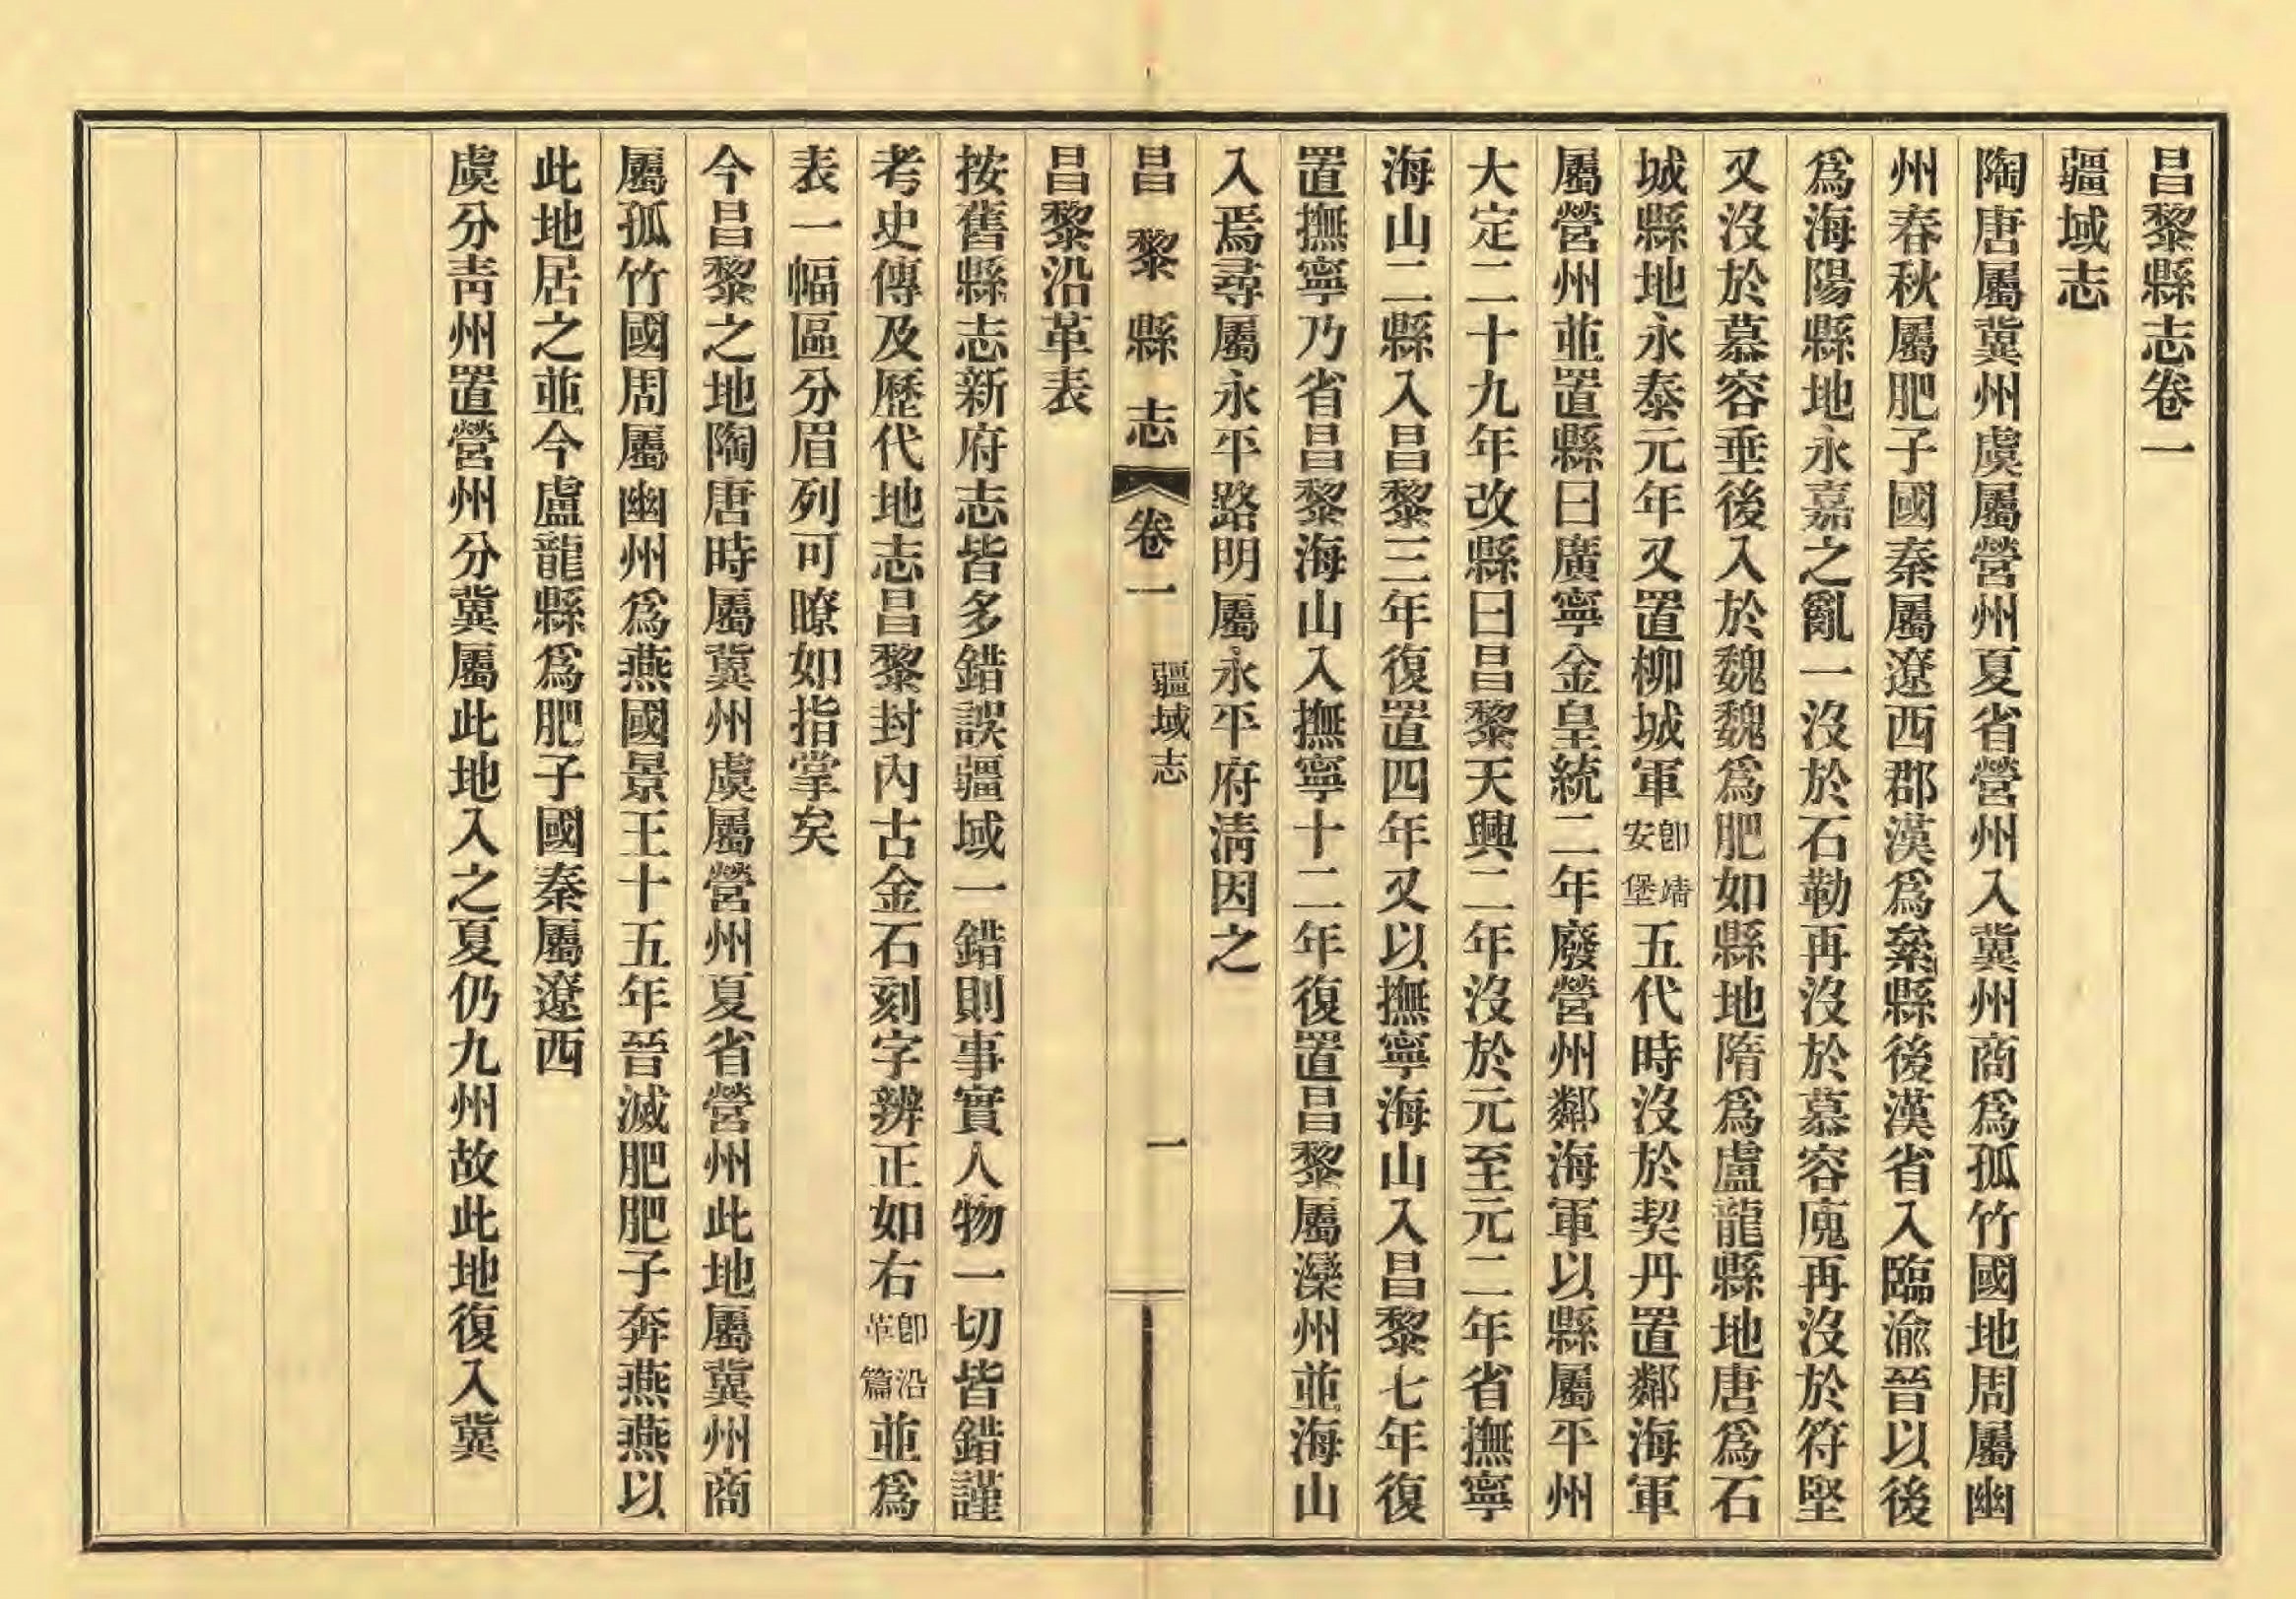 昌黎縣志卷一
疆域志
陶唐屬冀州虞屬營州夏省營州入冀州商爲孤竹國地周屬幽
州春秋屬肥子國秦屬遼西郡漢爲絫縣後漢省入臨渝晉以後
爲海陽縣地永嘉之亂一沒於石勒再沒於慕容廆再沒於符堅
又沒於慕容垂後入於魏魏爲肥如縣地隋爲盧龍縣地唐爲石
城縣地永泰元年又置柳城軍卽靖安堡五代時沒於契丹置鄰海軍
屬營州並置縣曰廣寧金皇統二年廢營州鄰海軍以縣屬平州
大定二十九年改縣曰昌黎天興二年沒於元至元二年省撫寧
海山二縣入昌黎三年復置四年又以撫寧海山入昌黎七年復
置撫寧乃省昌黎海山入撫寧十二年復置昌黎屬灤州並海山
入焉尋屬永平路明屬永平府淸因之
昌黎縣志 卷一 疆域志 一
昌黎沿革表
按舊縣志新府志皆多錯誤疆域一錯則事實人物一切皆錯謹
考史傳及歷代地志昌黎封內古金石刻字辨正如右卽沿革篇並爲
表一幅區分眉列可瞭如指掌矣
今昌黎之地陶唐時屬冀州虞屬營州夏省營州此地屬冀州商
屬孤竹國周屬幽州爲燕國景王十五年晉滅肥肥子奔燕燕以
此地居之並今盧龍縣爲肥子國秦屬遼西
虞分靑州置營州分冀屬此地入之夏仍九州故此地復入冀